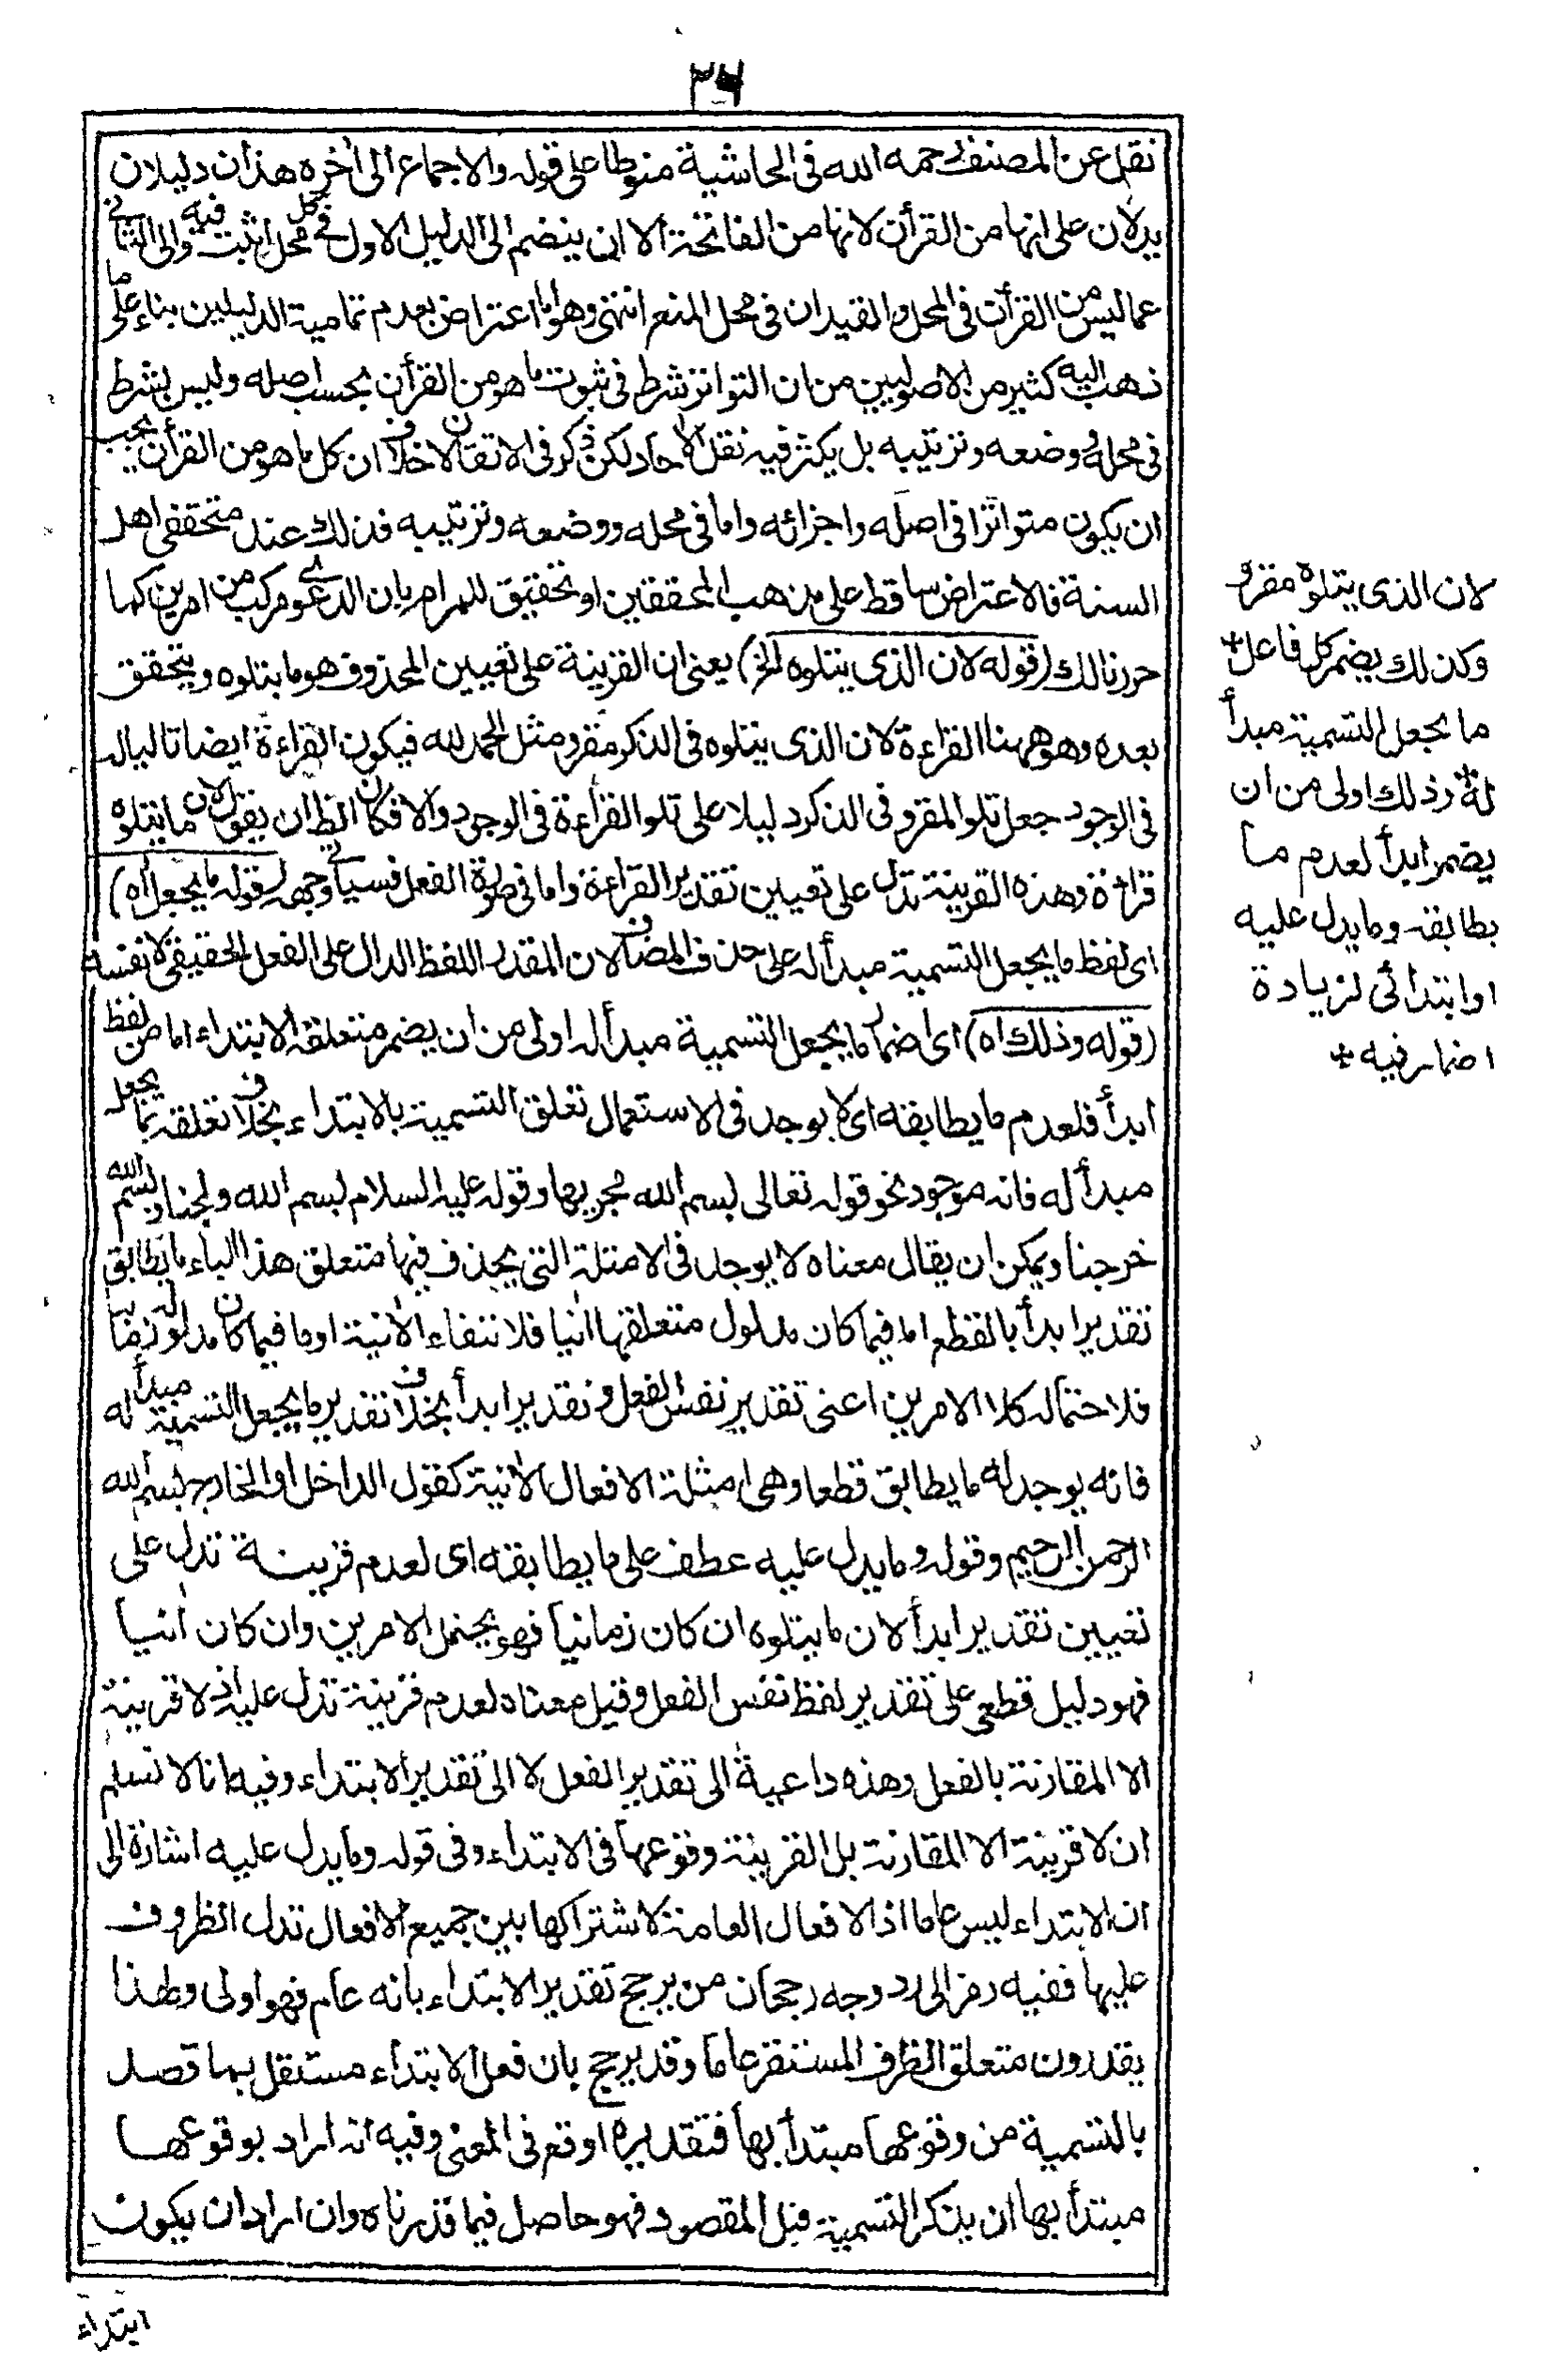 ٣٦
نقل عن المصنف رحمه الله فى الحاشية منوطا على قوله والاجماع الى أخره هذان دليلان
يدلان على انها من القرأن لانها من الفاتحة الا ان ينضم الى الدليل الاول فى كل محل اثبت فيه والى الثانى
عما ليس من القرأن فى المحل والقيدان فى محل المنع انتهى وهو اما اعتراض بعدم تمامية الدليلين بناء على ما
ذهب اليه كثير من الاصوليين من ان التواتر شرط فى ثبوت ما هو من القرأن بحسب اصله وليس بشرط
فى محله ووضعه وترتيبه بل يكثر فيه نقل الاحاد لكن ذكر فى الاتقان لا خلاف ان كل ما هو من القرأن يجب
ان يكون متواترا فى اصله واجزائه واما فى محله ووضعه وترتيبه فذلك عند محققى اهل
السنة فالاعتراض ساقط على مذهب المحققين او تحقيق للمرام بان الدعوى مركب من امرين كما
حررنا لك (قوله لان الذى يتلوه الخ) يعنى ان القرينة على تعيين المحذوف هو ما يتلوه ويتحقق
بعده وهو ههنا القراءة لان الذى يتلوه فى الذكر مقرو مثل الحمد لله فيكون القراءة ايضا تاليا له
فى الوجود جعل تلو المقرو فى الذكر دليلا على تلو القراءة فى الوجود والا فكان الظ ان يقول لان ما يتلوه
قراءة وهذه القرينة تدل على تعيين تقدير القراءة واما فى صورة الفعل فسيأتى وجهه (قوله ما يجعل أه)
اى لفظ ما يجعل التسمية مبدأ له على حذف المضاف لان المقدر اللفظ الدال على الفعل الحقيقى لا نفسه
(قوله وذلك اه) اى اضمار ما يجعل التسمية مبدأ له اولى من ان يضمر متعلقه الابتداء اما من لفظ
ابدأ فلعدم ما يطابقه اى لا يوجد فى الاستعمال تعلق التسمية بالابتداء بخلاف تعلقه بما يجعل
مبدأ له فانه موجود نحو قوله تعالى بسم الله مجريها وقوله عليه السلام بسم الله ولجنا وبسم الله
خرجنا ويمكن ان يقال معناه لا يوجد فى الامثلة التى يحذف فيها متعلق هذا الباء ما يطابق
تقدير ابدأ بالقطع اما فيما كان مدلول متعلقها أنيا فلانتفاء الأنية اوما فيما كان مدلوله زمانيا
فلاحتماله كلا الامرين اعنى تقدير نفس الفعل وتقدير ابدأ بخلاف تقدير ما يجعل التسمية مبدأ له
فانه يوجد له ما يطابق قطعا وهى امثلة الافعال الأنية كقول الداخل او الخارج بسم الله
الرحمن الرحيم وقوله وما يدل عليه عطف على ما يطابقه اى لعدم قرينة تدل على
تعيين تقدير ابدأ لان ما يتلوه ان كان زمانيا فهو يحتمل الامرين وان كان أنيا
فهو دليل قطعى على تقدير لفظ نفس الفعل وقيل معناه لعدم قرينة تدل عليه اذ لا قرينة
الا المقارنة بالفعل وهذه داعية الى تقدير الفعل لا الى تقدير الابتداء وفيه انا لا نسلم
ان لا قرينة الا المقارنة بل القرينة وقوعها فى الابتداء وفى قوله وما يدل عليه اشارة الى
ان الابتداء ليس عاما اذ الافعال العامة لاشتراكها بين جميع الافعال تدل الظروف
عليها ففيه رمز الى رد وجه رجحان من يرجح تقدير الابتداء بانه عام فهو اولى ولهذا
يقدرون متعلق الظرف المستقر عاما وقد يرجح بان فعل الابتداء مستقل بما قصد
بالتسمية من وقوعها مبتدأ بها فتقديره اوقع فى المعنى وفيه انه اراد بوقوعها
مبتدأ بها ان يذكر التسمية قبل المقصود فهو حاصل فيما قدرناه وان اراد ان يكون
ابتداء
لان الذى يتلوه مقرو
وكذلك يضمر كل فاعل
ما يجعل التسمية مبدأ
له وذلك اولى من ان
يضمر ابدأ لعدم ما
يطابقه وما يدل عليه
او ابتدائى لزيادة
اضمار فيه